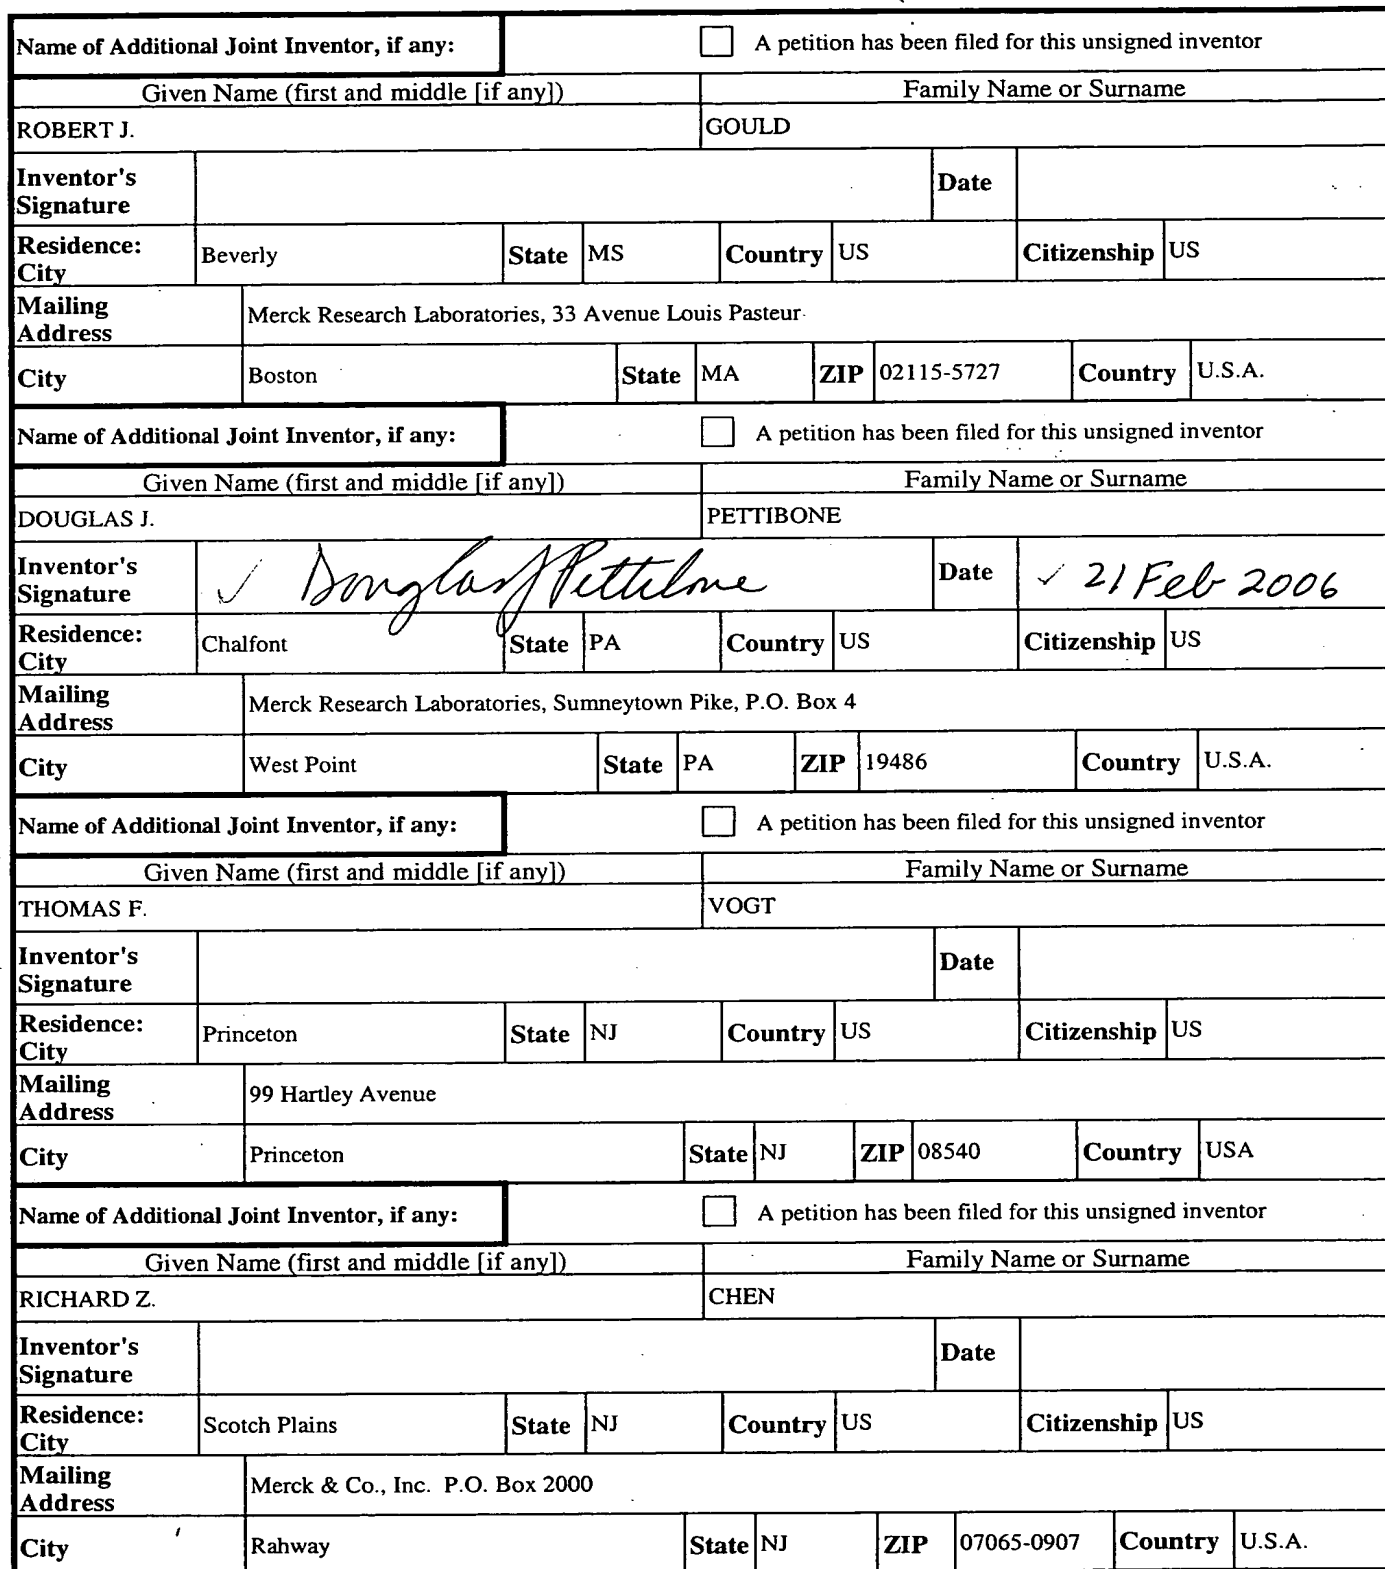 Name of Additional Joint Inventor, if any: A petition has been filed for this unsigned inventor
Given Name (first and middle [if any]) Family Name or Surname
ROBERT J. GOULD
Inventor's Signature Date
Residence: City Beverly State MS Country US Citizenship US
Mailing Address Merck Research Laboratories, 33 Avenue Louis Pasteur
City Boston State MA ZIP 02115-5727 Country U.S.A.
Name of Additional Joint Inventor, if any: A petition has been filed for this unsigned inventor
Given Name (first and middle [if any]) Family Name or Surname
DOUGLAS J. PETTIBONE
Inventor's Signature ✓ Douglas J Pettibone Date ✓ 21 Feb 2006
Residence: City Chalfont State PA Country US Citizenship US
Mailing Address Merck Research Laboratories, Sumneytown Pike, P.O. Box 4
City West Point State PA ZIP 19486 Country U.S.A.
Name of Additional Joint Inventor, if any: A petition has been filed for this unsigned inventor
Given Name (first and middle [if any]) Family Name or Surname
THOMAS F. VOGT
Inventor's Signature Date
Residence: City Princeton State NJ Country US Citizenship US
Mailing Address 99 Hartley Avenue
City Princeton State NJ ZIP 08540 Country USA
Name of Additional Joint Inventor, if any: A petition has been filed for this unsigned inventor
Given Name (first and middle [if any]) Family Name or Surname
RICHARD Z. CHEN
Inventor's Signature Date
Residence: City Scotch Plains State NJ Country US Citizenship US
Mailing Address Merck & Co., Inc. P.O. Box 2000
City Rahway State NJ ZIP 07065-0907 Country U.S.A.